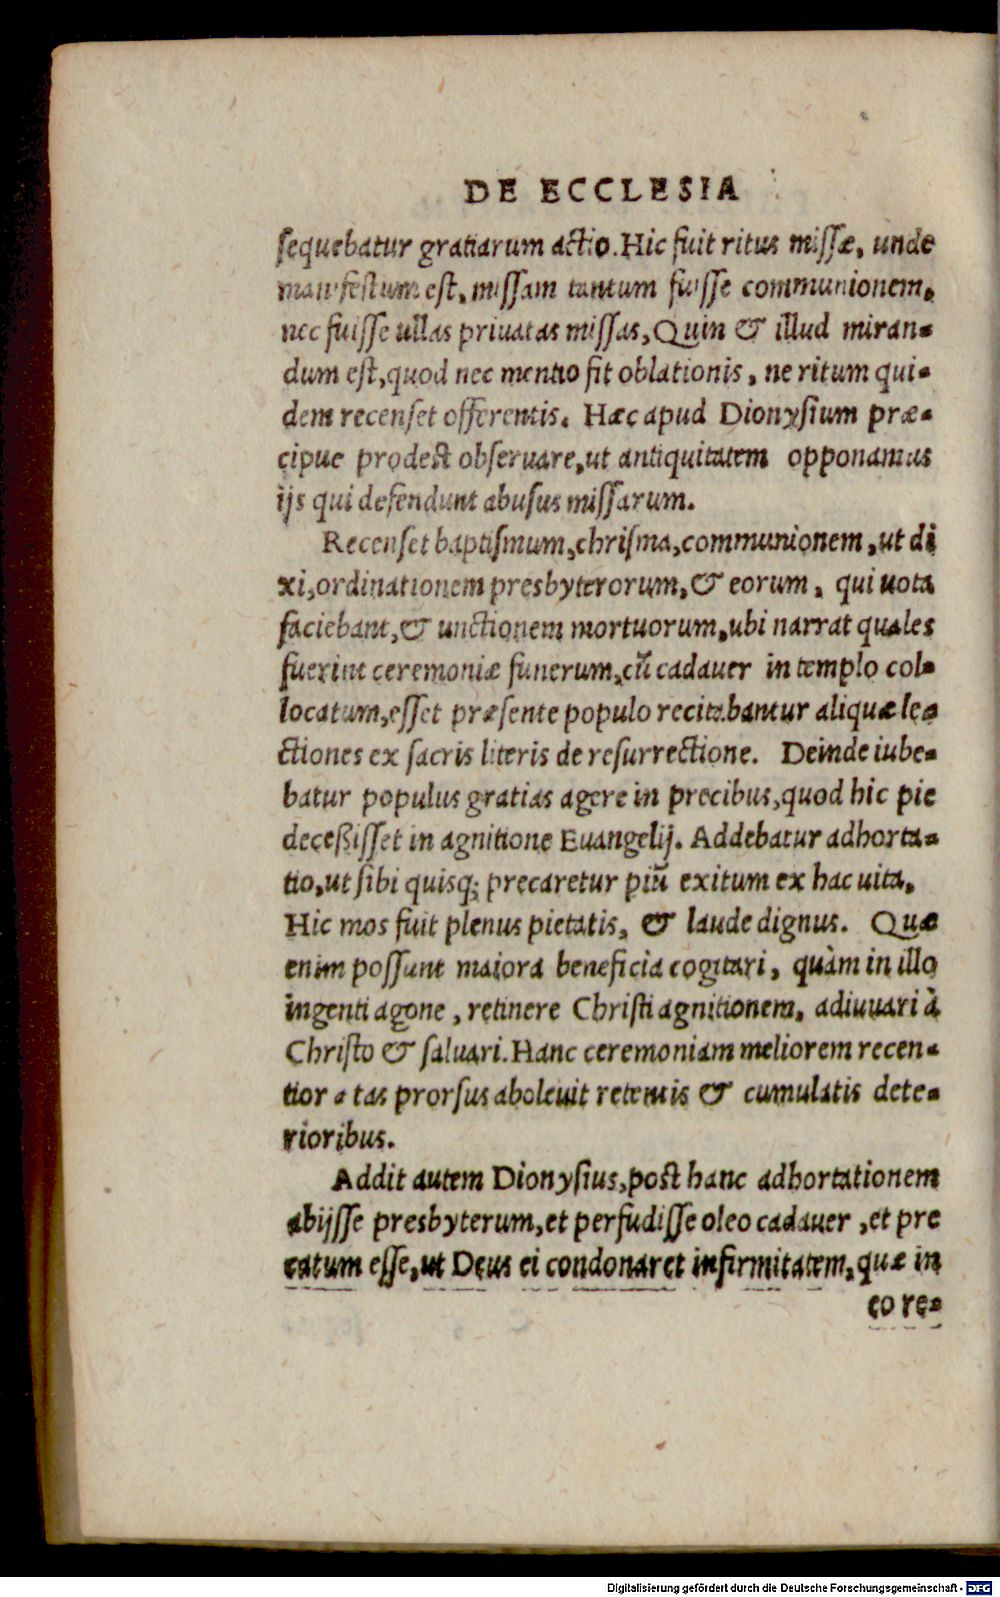 DE ECCLESIA
sequebatur gratiarum actio. Hic fuit ritus missæ, unde
manifestum est, missam tantum fuisse communionem,
nec fuisse ullas priuatas missas, Quin & illud miran-
dum est, quod nec mentio fit oblationis, ne ritum qui-
dem recenset offerentis. Hæc apud Dionysium præ-
cipue prodest obseruare, ut antiquitatem opponamus
ijs qui defendunt abusus missarum.
Recenset baptismum, chrisma, communionem, ut di
xi, ordinationem presbyterorum, & eorum, qui uota
faciebant, & unctionem mortuorum, ubi narrat quales
fuerint ceremoniæ funerum, cũ cadauer in templo col-
locatum, esset præsente populo recitabantur aliquæ le-
ctiones ex sacris literis de resurrectione. Deinde iube-
batur populus gratias agere in precibus, quod hic pie
deceßisset in agnitione Euangelij. Addebatur adhorta-
tio, ut sibi quisq; precaretur piũ exitum ex hac uita.
Hic mos fuit plenus pietatis, & laude dignus. Quæ
enim possunt maiora beneficia cogitari, quàm in illo
ingenti agone, retinere Christi agnitionem, adiuuari à
Christo & saluari. Hanc ceremoniam meliorem recen-
tior ætas prorsus aboleuit retentis & cumulatis dete-
rioribus.
Addit autem Dionysius, post hanc adhortationem
abijsse presbyterum, et perfudisse oleo cadauer, et pre
catum esse, ut Deus ei condonaret infirmitatem, quæ in
eo re-
Digitalisierung gefördert durch die Deutsche Forschungsgemeinschaft - DFG